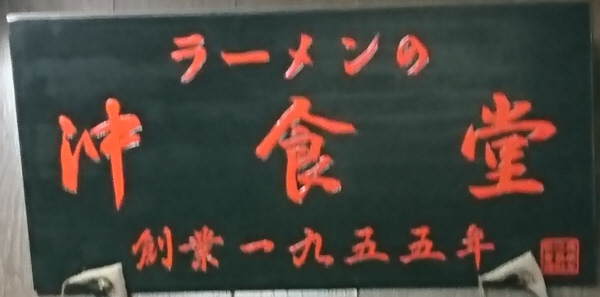 ラーメンの
沖食堂
創業一九五五年